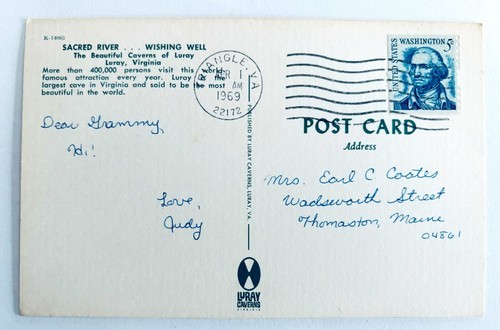 K-14065
SACRED RIVER ... WISHING WELL
The Beautiful Caverns of Luray
Luray, Virginia
More than 400,000 persons visit this world
famous attraction every year. Luray is the
largest cave in Virginia and said to be the most
beautiful in the world.
TRIANGLE, VA
APR 1
AM
1969
22172
UNITED STATES
WASHINGTON 5c
Dear Grammy,
Hi!
Love,
Judy
PUBLISHED BY LURAY CAVERNS, LURAY, VA.
POST CARD
Address
Mrs. Earl C Coates
Wadsworth Street
Thomaston, Maine
04861
LURAY
CAVERNS
VIRGINIA